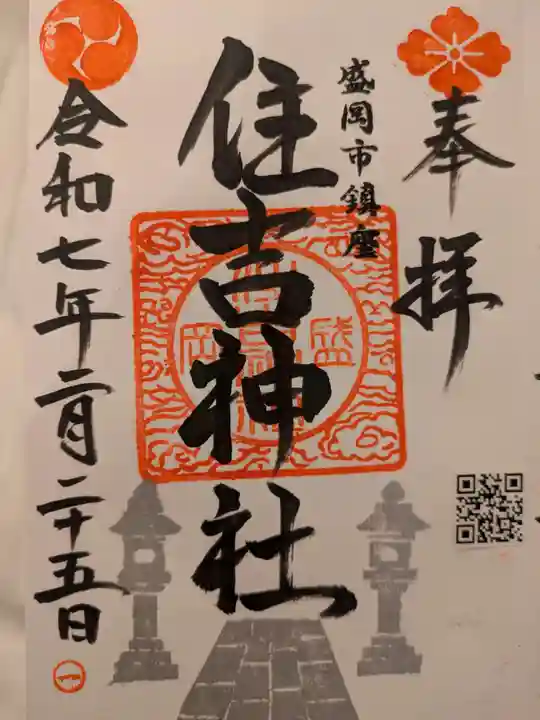 奉拝
盛岡市鎮座
住吉神社
盛
岡
令和七年二月二十五日
一